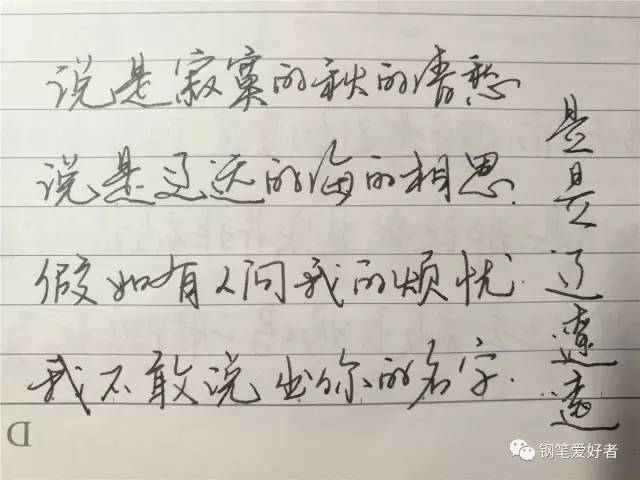 说是寂寞的秋的清愁
说是辽远的海的相思.
假如有人问我的烦忧.
我不敢说出你的名字.
是是辽遼遼
D
钢笔爱好者